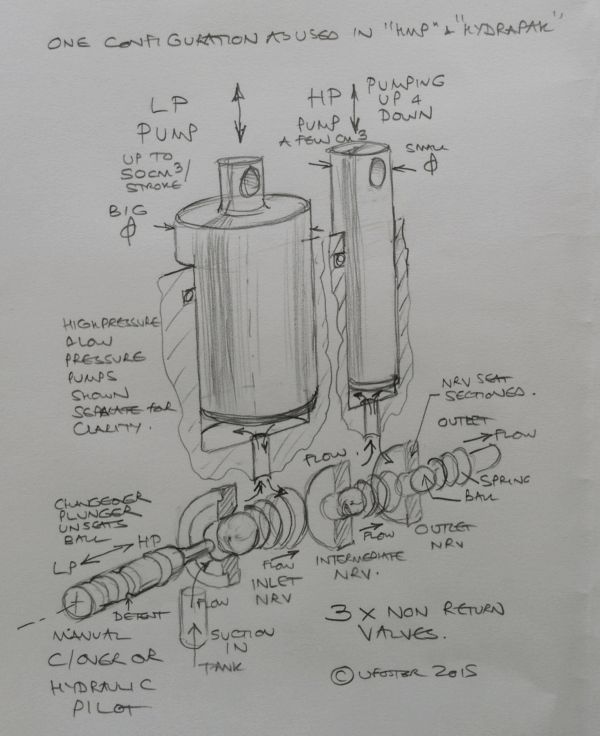 ONE CONFIGURATION AS USED IN "HMP" & "HYDRAPAK"
LP
PUMP
UP TO
50CM3/
STROKE
HP
PUMP
A FEW CM3
PUMPING
UP &
DOWN
SMALL
Φ
BIG
Φ
HIGH PRESSURE
& LOW
PRESSURE
PUMPS
SHOWN
SEPARATE FOR
CLARITY.
NRV SEAT
SECTIONED.
OUTLET
FLOW
FLOW.
SPRING
BALL
CHANGEOVER
PLUNGER
UNSEATS
BALL
HP
LP
FLOW
OUTLET
NRV
FLOW
INLET
NRV
INTERMEDIATE
NRV.
DETENT
FLOW
SUCTION
IN
TANK
MANUAL
C/OVER OR
HYDRAULIC
PILOT
3 X NON RETURN
VALVES.
© UFOSTER 2015